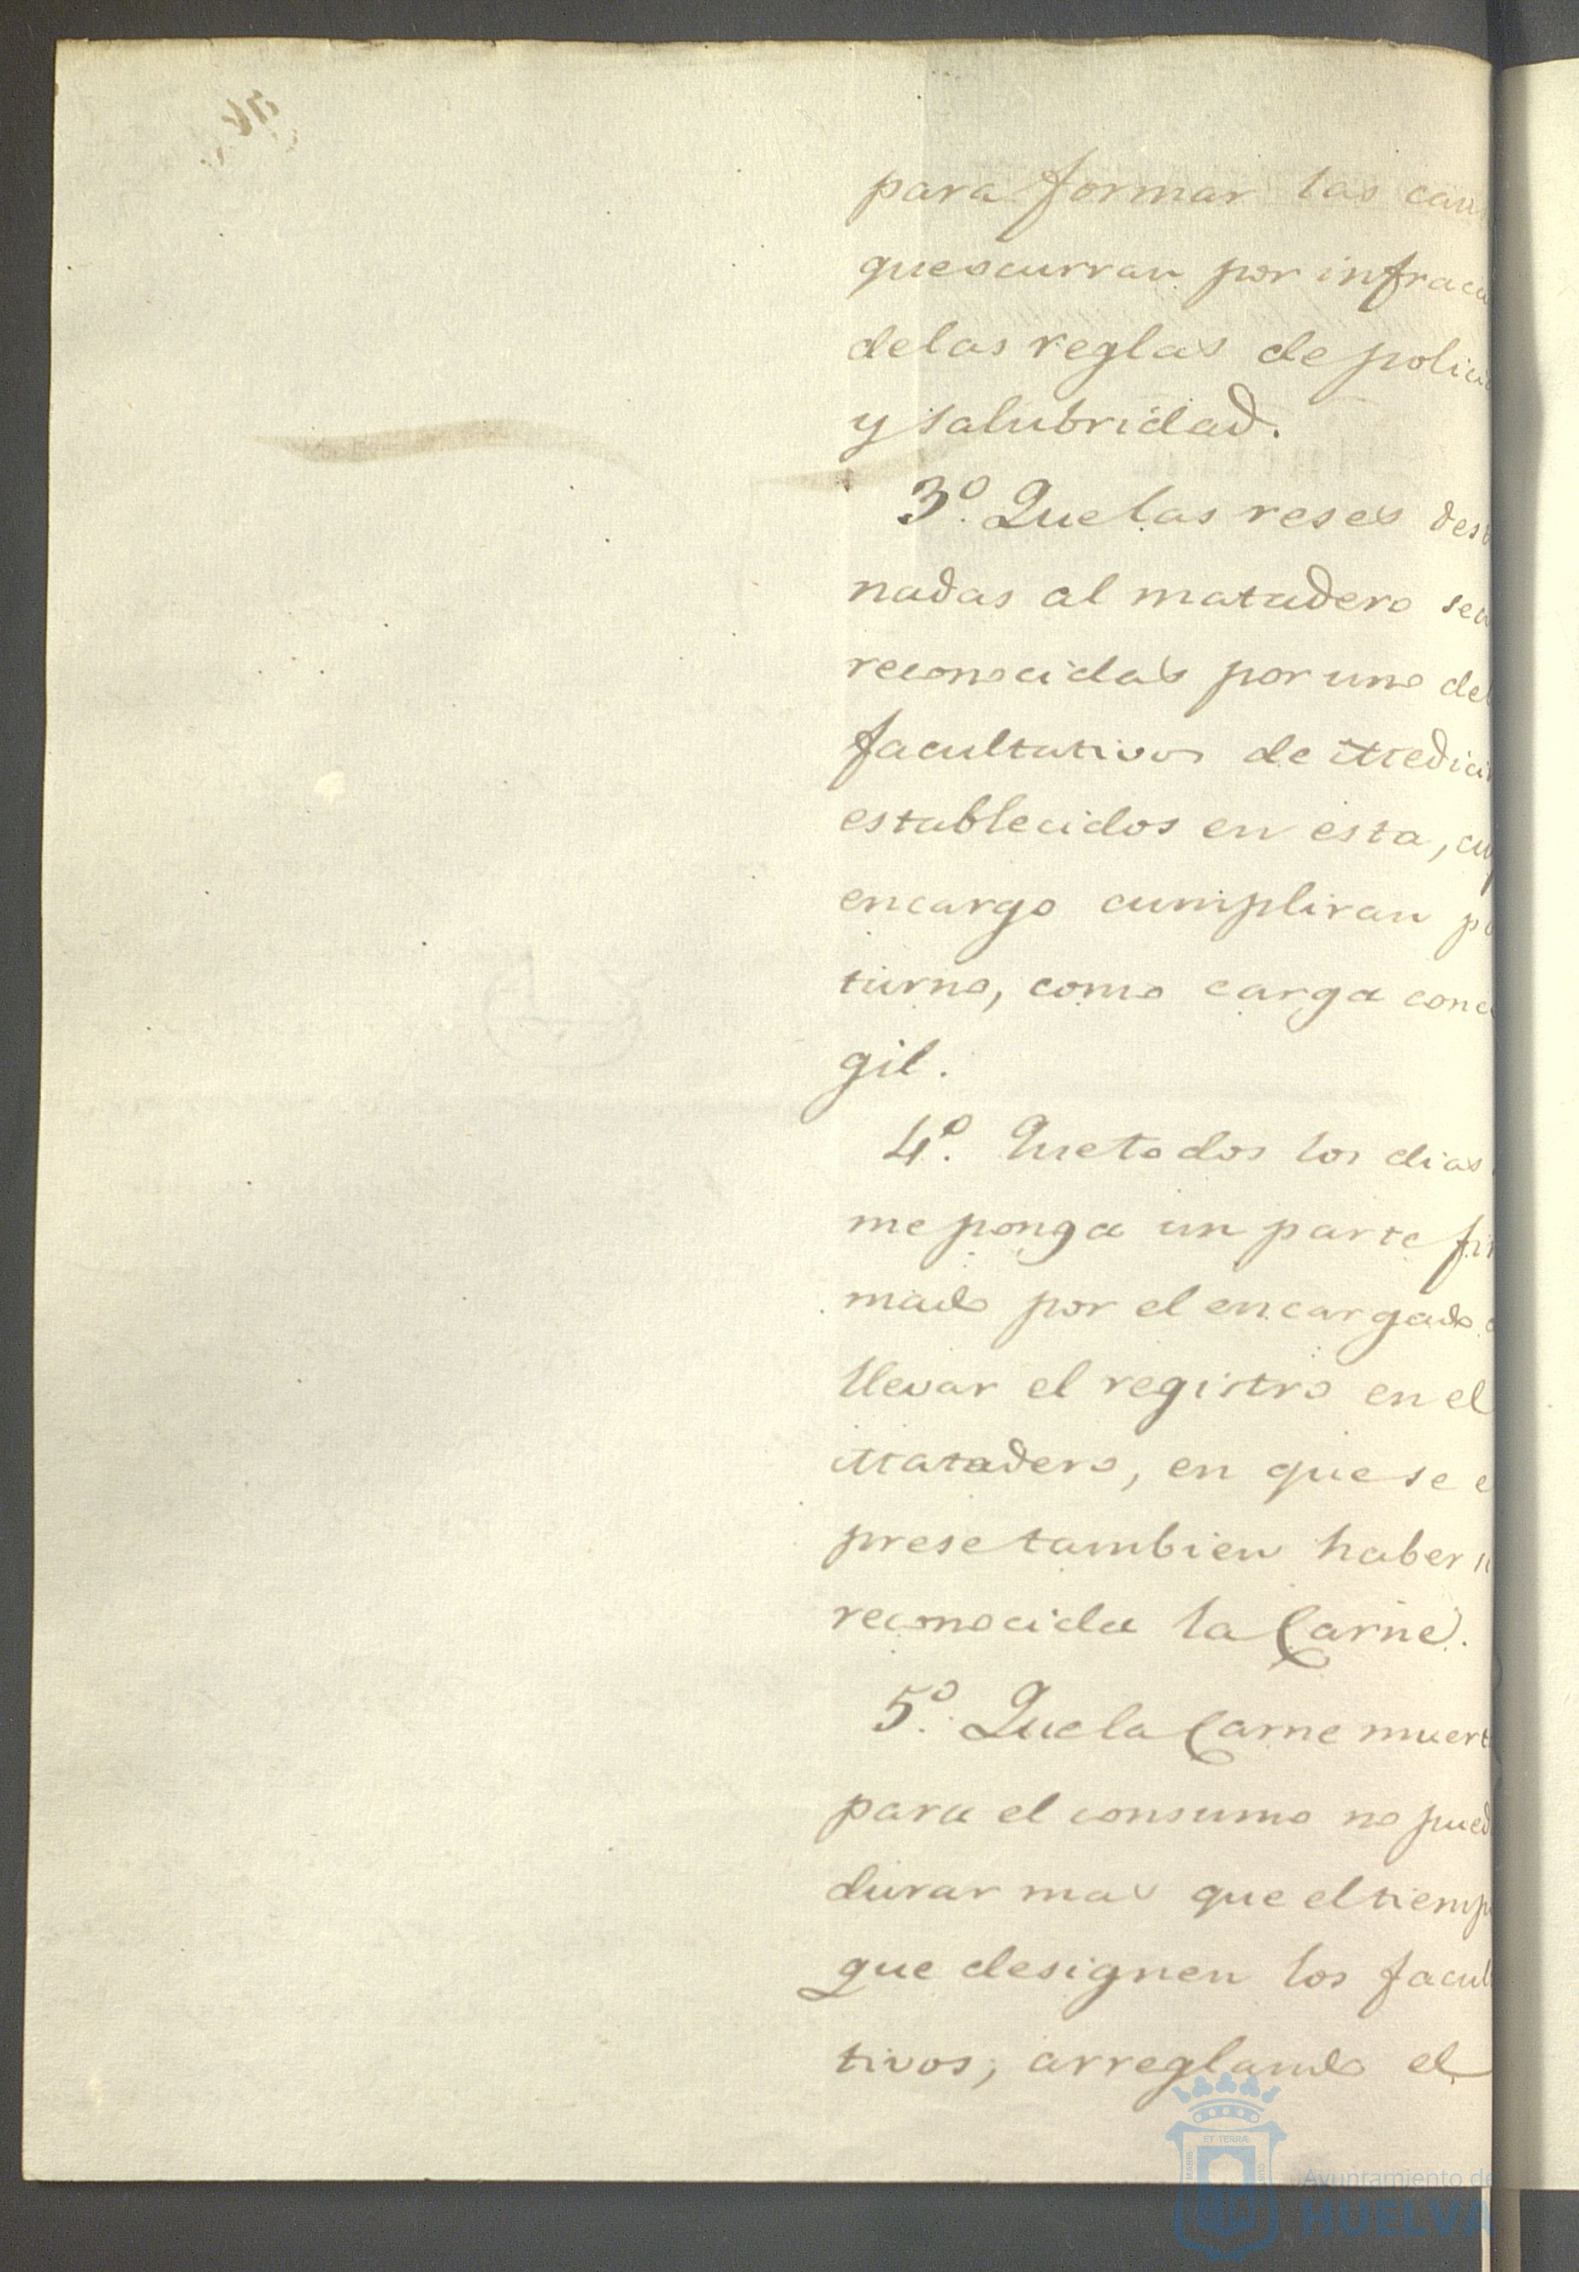 para formar las cau
que ocurran por infracci
de las reglas de polici
y salubridad.
3º. Que las reses dest
nadas al matadero sea
reconocidas por uno de
facultativos de Medici
establecidos en esta, cu
encargo cumpliran p
turno, como carga conc
gil.
4º. Que todos los dias
me ponga un parte fir
mado por el encargado
llevar el registro en el
Matadero, en que se e
prese tambien haber
reconocida la Carne.
5º. Que la Carne muert
para el consumo no pued
durar mas que el tiemp
que designen los facul
tivos, arreglando el
ET TERRÆ
Ayuntamiento de
HUELVA